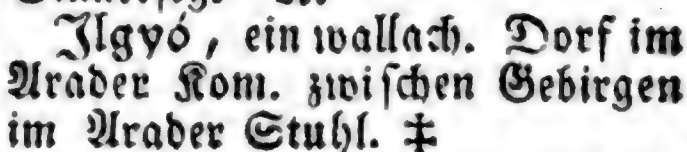 Ilgyó, ein wallach. Dorf im
Arader Kom. zwischen Gebirgen
im Arader Stuhl. ‡